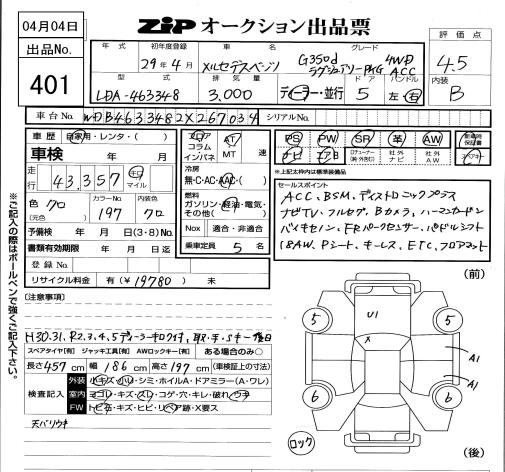 04月04日
ZiP オークション出品票
出品No. 401
年式 初年度登録 車名 グレード 評価点
29年4月 メルセデスベンツ G350d 4WD 4.5
ラグジュアリーPKG ACC
型式 排気量 ドア ハンドル 内装
LDA-463348 3,000 ディーラー・並行 5 左・右 B
車台No. WDB4633482X267034 シリアルNo.
車歴 自家用・レンタ・( )
フロア コラム インパネ AT MT 速
PS PW SR 革 AW 新車時保証書
ナビ エアB ロデューナー(純・外割引) 社外ナビ 社外AW スペアキー
※上記太枠内は標準装備品
車検 年 月
走行 43,357 キロ マイル
冷房 無・C・AC・AAC・( )
燃料 ガソリン・軽油・電気・その他( )
色 クロ (元色) カラーNo. 197 内装色 クロ
予備検 年 月 日(3・8)No.
Nox 適合・非適合
書類有効期限 年 月 日迄
乗車定員 5名
登録No.
リサイクル料金 有(¥19780) 未
セールスポイント
ACC、BSM、ディストロニックプラス
ナビTV、フルセグ、Bカメラ、ハーマンカードン
バイキセノン、FRパークセンサー、パドルシフト
18AW、Pシート、キーレス、ETC、フロアマット
※ご記入の際はボールペンで強くご記入下さい。
[注意事項]
H30.31、R2.3.4.5ディーラーキロクイチ、取・手・Sキー後日
スペアタイヤ[有] ジャッキ工具[有] AWロックキー[有] ある場合のみ○
長さ457cm 幅186cm 高さ197cm (車検証上の寸法)
検査記入 外装 小キズ・凹・シミ・ホイルA・ドアミラー(A・ワレ)
室内 ヨゴレ・キズ・スレ・コゲ・穴・キレ・破れ・ウキ
FW トビ石・キズ・ヒビ・リペア跡・X要ス
天バリウキ
(前)
U1
X
5
5
A1
A1
6
6
ロック
(後)